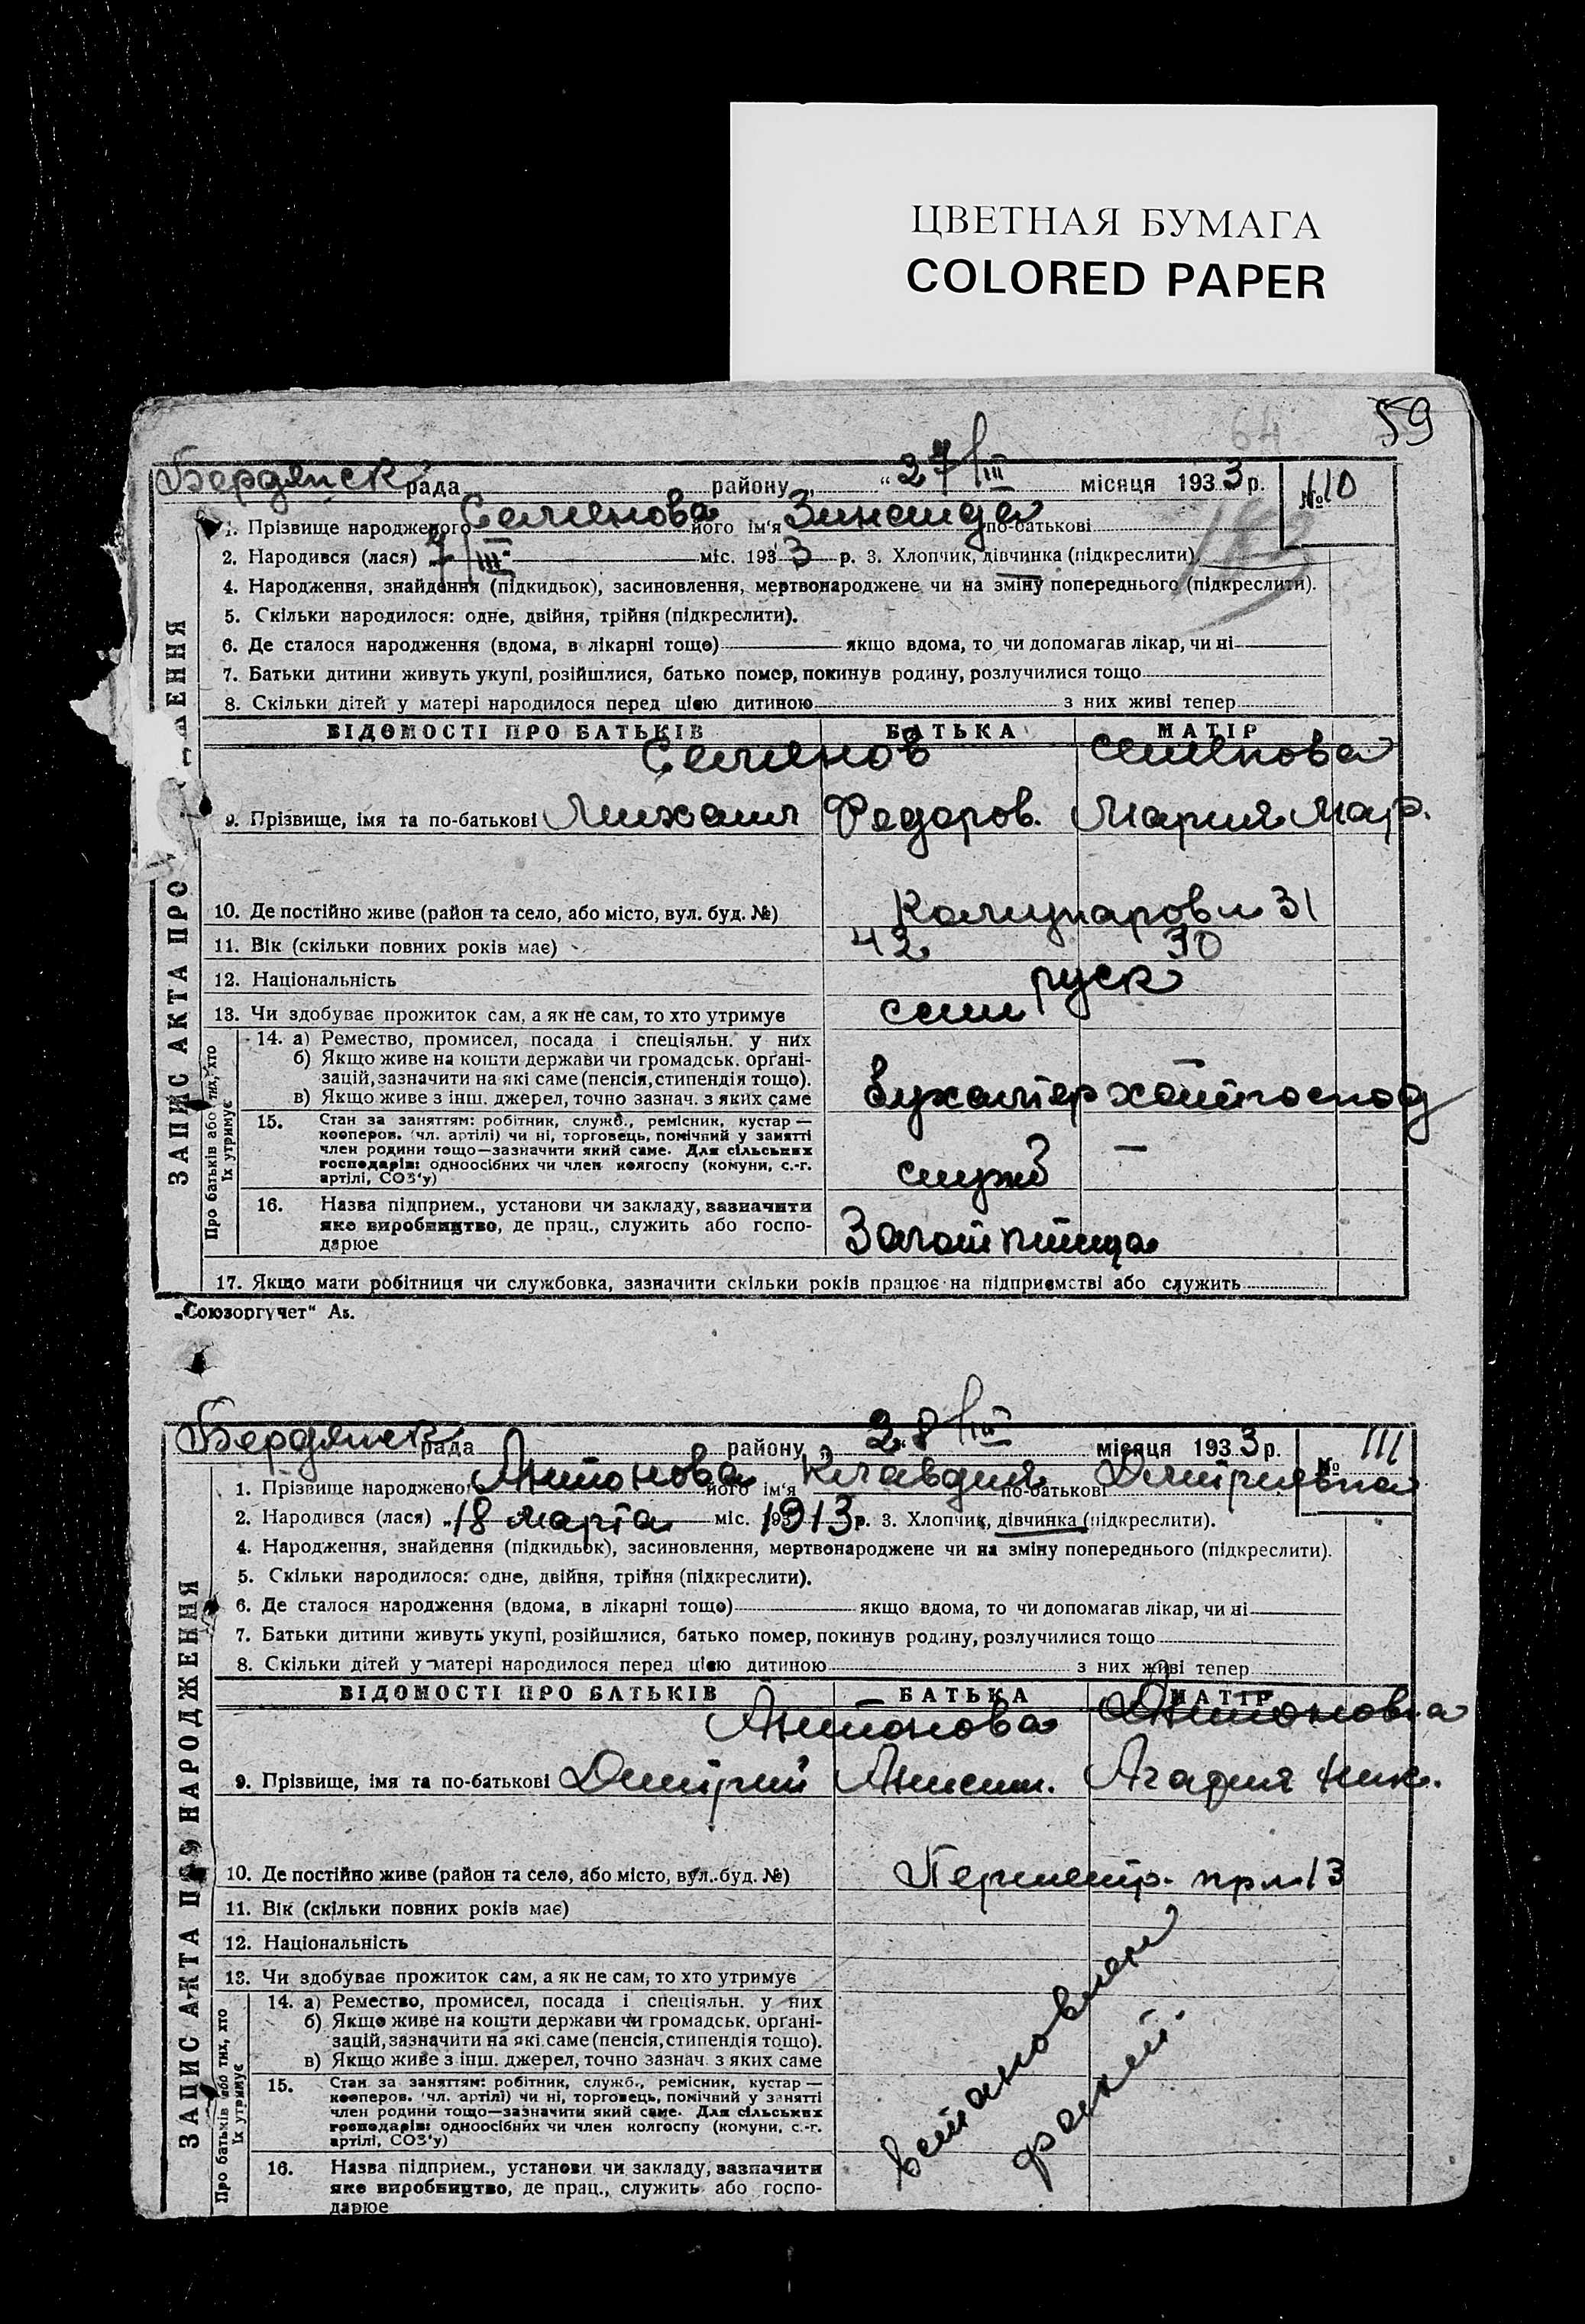 ЦВЕТНАЯ БУМАГА
COLORED PAPER
59
64
Бердянск рада району „ “ 27/III місяця 1933 р. № 110
1. Прізвище народженого Семенова його ім‘я Зинаида по-батькові
2. Народився (лася) 7/III міс. 1933 р. 3. Хлопчик, дівчинка (підкреслити).
4. Народження, знайдення (підкидьок), засиновлення, мертвонароджене чи на зміну попереднього (підкреслити).
5. Скільки народилося: одне, двійня, трійня (підкреслити).
6. Де сталося народження (вдома, в лікарні тощо) якщо вдома, то чи допомагав лікар, чи ні
7. Батьки дитини живуть укупі, розійшлися, батько помер, покинув родину, розлучилися тощо
8. Скільки дітей у матері народилося перед цією дитиною з них живі тепер
ВІДОМОСТІ ПРО БАТЬКІВ БАТЬКА МАТІР
Семенов Семенова
9. Прізвище, імя та по-батькові Михаил Федоров. Мария Мар.
10. Де постійно живе (район та село, або місто, вул. буд. №) Комунаров 31
11. Вік (скільки повних років має) 42 30
12. Національність руск
13. Чи здобуває прожиток сам, а як не сам, то хто утримує сам
14. а) Ремество, промисел, посада і спеціяльн. у них
б) Якщо живе на кошти держави чи громадськ. органі-
зацій, зазначити на які саме (пенсія, стипендія тощо).
в) Якщо живе з інш. джерел, точно зазнач. з яких саме Бухалтер —
15. Стан за заняттям: робітник, служб., ремісник, кустар —
кооперов. (чл. артілі) чи ні, торговець, помічний у занятті
член родини тощо—зазначити який саме. Для сільських
господарів: одноосібних чи член колгоспу (комуни, с.-г.
артілі, СОЗ'у) служб —
16. Назва підприєм., установи чи закладу, зазначити
яке виробництво, де прац., служить або госпо-
дарює Заготптица
17. Якщо мати робітниця чи службовка, зазначити скільки років працює на підприємстві або служить
ЗАПИС АКТА ПРО ЕННЯ
Про батьків або тих, хто
їх утримує
„Союзоргучет“ Аз.
Бердянск рада району „ “ 28/III місяця 1933 р. № 111
1. Прізвище народженого Антонова його ім‘я Клавдия по-батькові Дмитриевна
2. Народився (лася) „18 марта міс. 1913 р. 3. Хлопчик, дівчинка (підкреслити).
4. Народження, знайдення (підкидьок), засиновлення, мертвонароджене чи на зміну попереднього (підкреслити).
5. Скільки народилося: одне, двійня, трійня (підкреслити).
6. Де сталося народження (вдома, в лікарні тощо) якщо вдома, то чи допомагав лікар, чи ні
7. Батьки дитини живуть укупі, розійшлися, батько помер, покинув родину, розлучилися тощо
8. Скільки дітей у матері народилося перед цією дитиною з них живі тепер
ВІДОМОСТІ ПРО БАТЬКІВ БАТЬКА МАТІР
Антонова Антоновна
9. Прізвище, імя та по-батькові Дмитрий Анисим. Агафия Ник.
10. Де постійно живе (район та село, або місто, вул. буд. №) 13
11. Вік (скільки повних років має)
12. Національність
13. Чи здобуває прожиток сам, а як не сам, то хто утримує
14. а) Ремество, промисел, посада і спеціяльн. у них
б) Якщо живе на кошти держави чи громадськ. органі-
зацій, зазначити на які саме (пенсія, стипендія тощо).
в) Якщо живе з інш. джерел, точно зазнач. з яких саме
15. Стан за заняттям: робітник, служб., ремісник, кустар —
кооперов. (чл. артілі) чи ні, торговець, помічний у занятті
член родини тощо—зазначити який саме. Для сільських
господарів: одноосібних чи член колгоспу (комуни, с.-г.
артілі, СОЗ'у)
16. Назва підприєм., установи чи закладу, зазначити
яке виробництво, де прац., служить або госпо-
дарює
ЗАПИС АКТА ПРО НАРОДЖЕННЯ
Про батьків або тих, хто
їх утримує